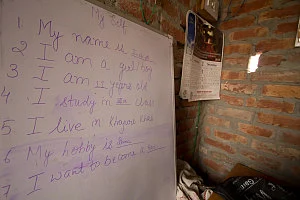 My Self
1 My name is
2 I am a girl/boy
3 I am years old
4 I study in class
5 I live in
6 My hobby is
7 I want to become a